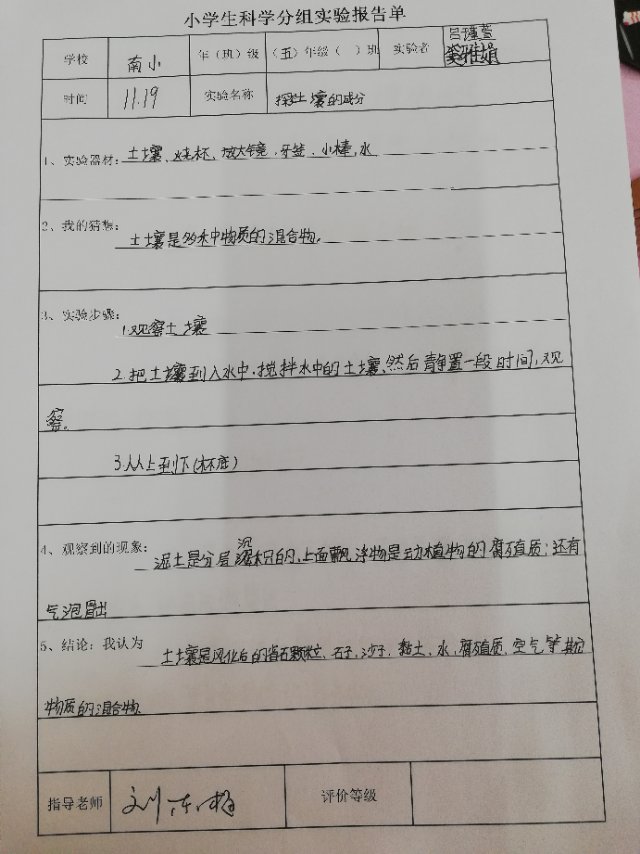 小学生科学分组实验报告单
学校 南小 年（班）级 （五）年级（ ）班 实验者 吕瑾萱
雅娟
时间 11.19 实验名称 探土壤的成分
1、实验器材：土壤、烧杯、放大镜、牙签、小棒，水
2、我的猜想：土壤是多种物质的混合物。
3、实验步骤：
1.观察土壤
2.把土壤到入水中，搅拌水中的土壤，然后静置一段时间，观
察。
3.从上到下（杯底）
4、观察到的现象：泥土是分层沉积的，上面飘浮物是动植物的腐殖质；还有
气泡冒出
5、结论：我认为 土壤是风化后的岩石颗粒、石子、沙子、黏土、水、腐殖质、空气等
物质的混合物
指导老师 刘 评价等级